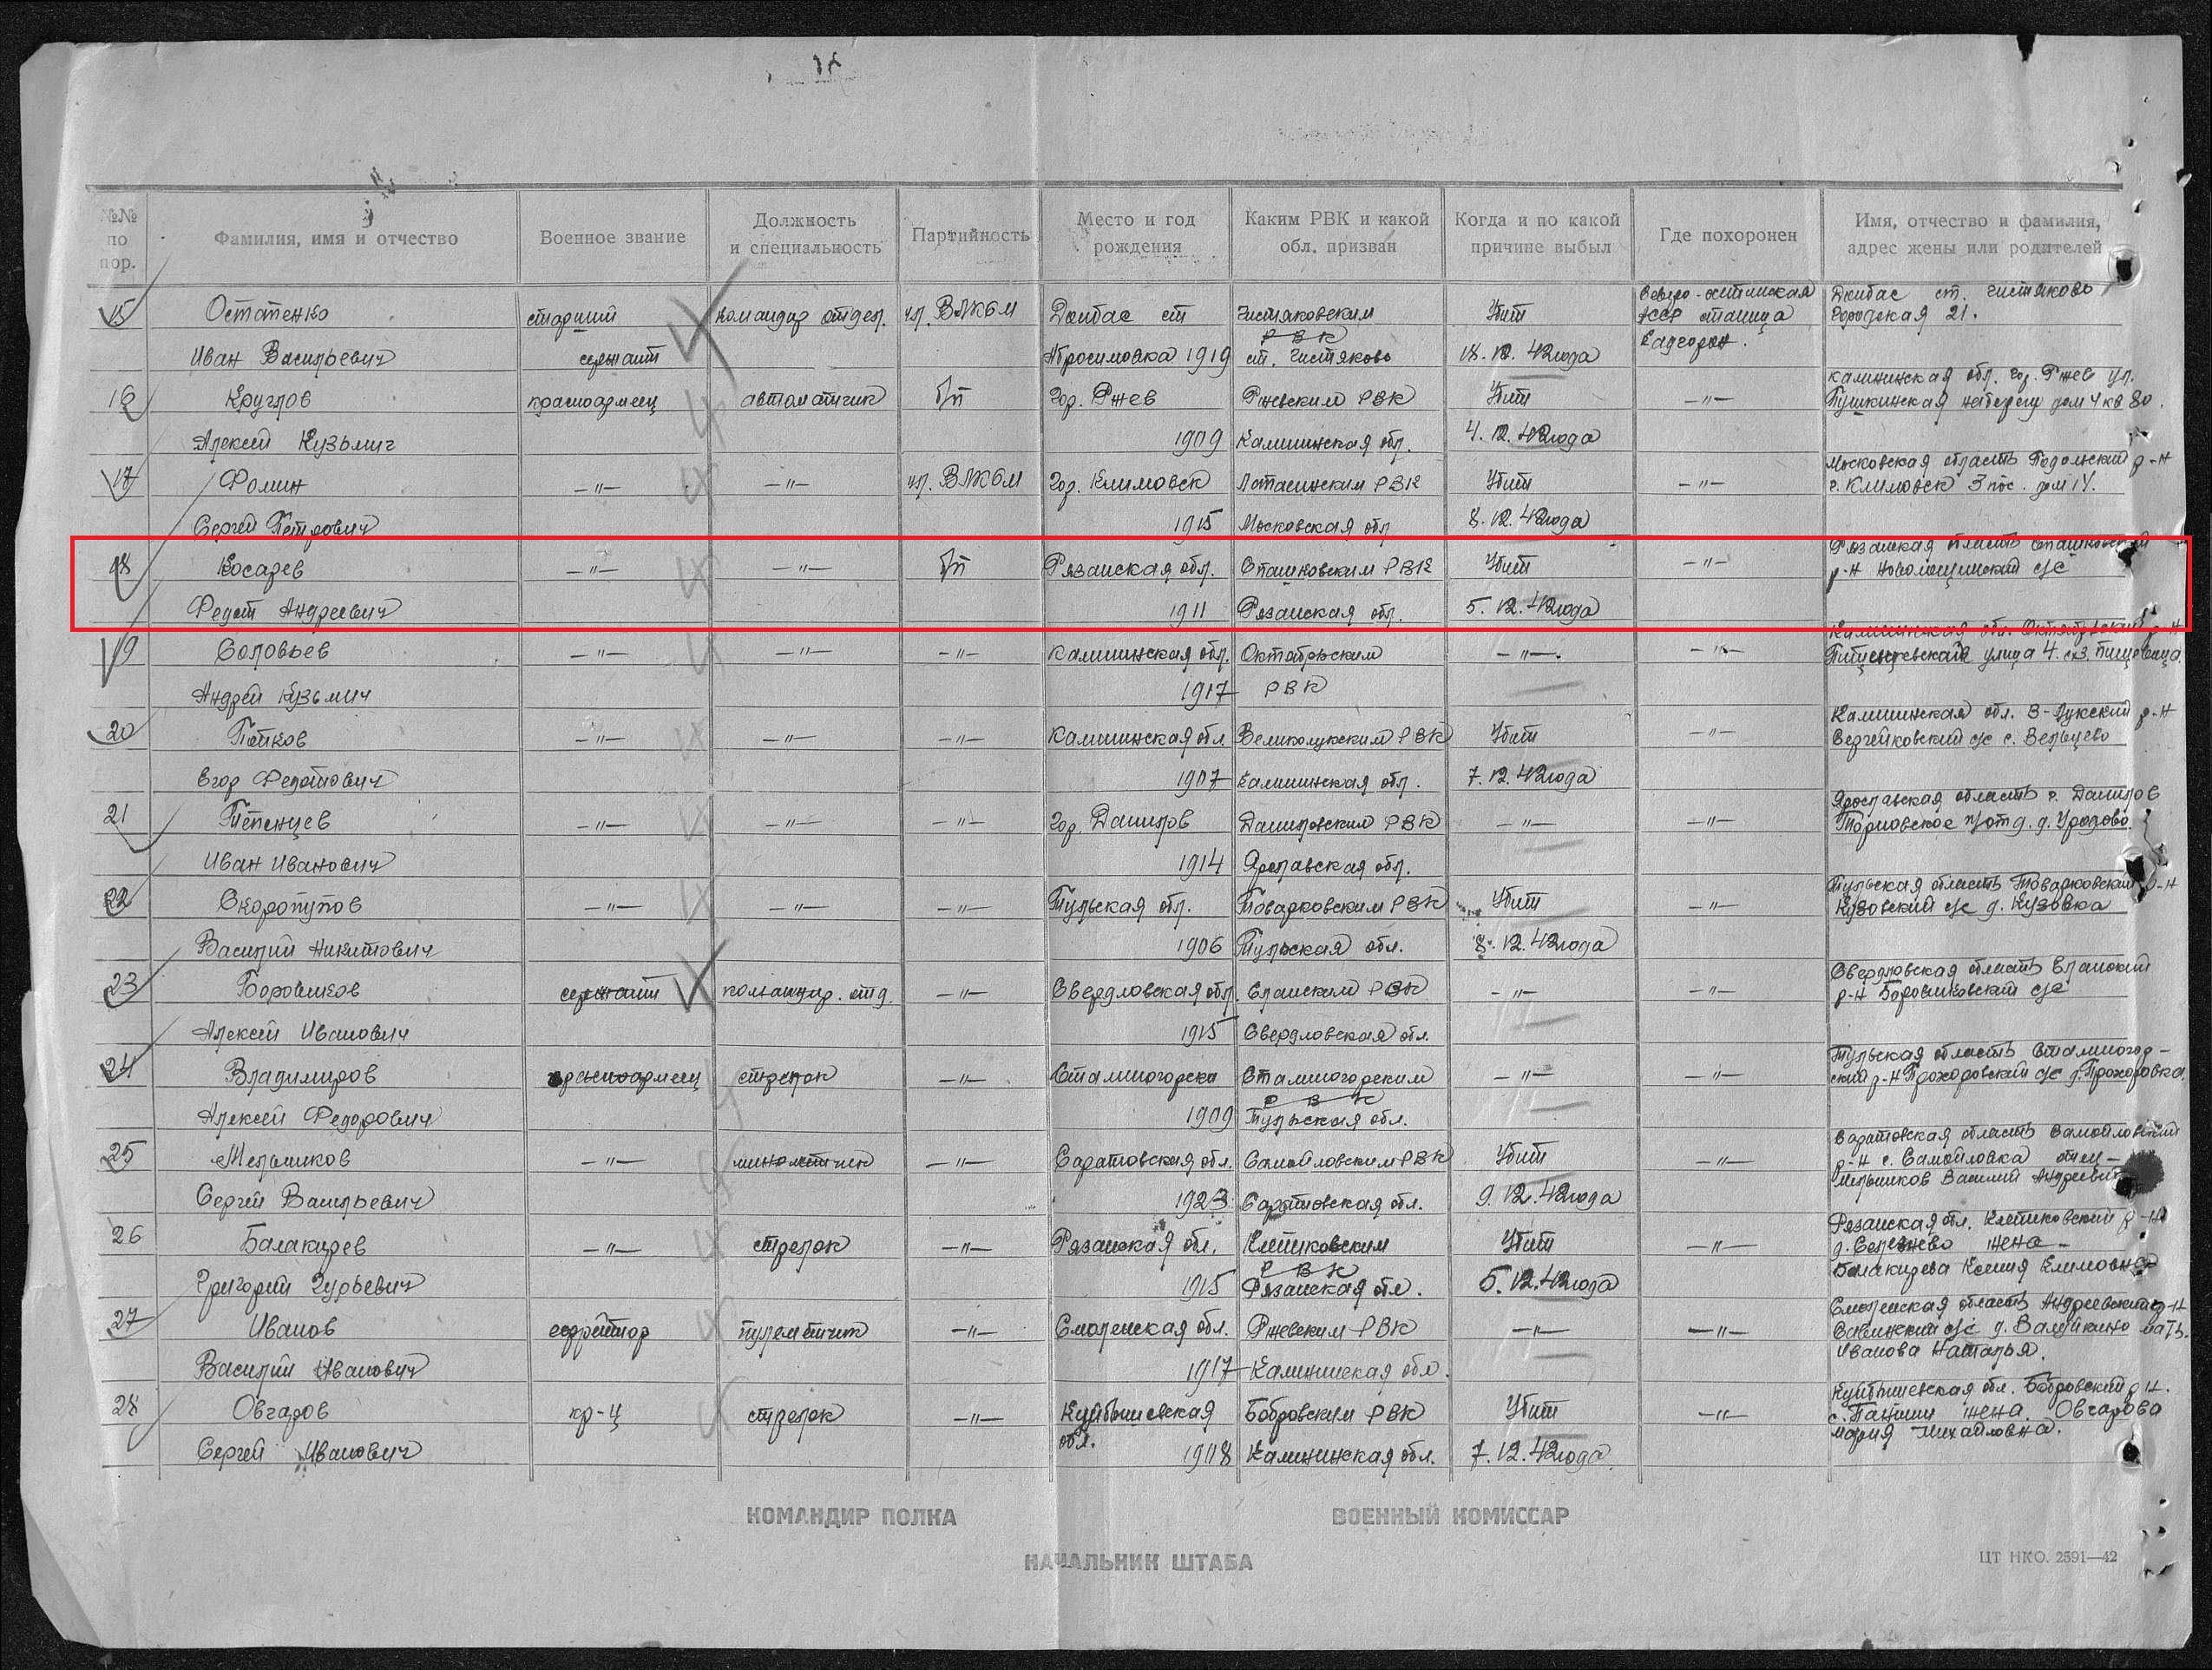 №№ по пор.
Фамилия, имя и отчество
Военное звание
Должность и специальность
Партийность
Место и год рождения
Каким РВК и какой обл. призван
Когда и по какой причине выбыл
Где похоронен
Имя, отчество и фамилия, адрес жены или родителей
15 Остатенко старший командир отдел. чл. ВЛКСМ Донбас ст Чистяковским Убит Северо-осетинская АССР станица Донбас ст. Чистяково Городская 21.
Иван Васильевич сержант 1919 РВК ст. Чистяково 18.12.42года
16 Круглов красноармеец автоматчик б/п Гор. Ржев Ржевским РВК Убит -"- Калининская обл. гор. Ржев ул. Пушкинская дом 4 кв 80.
Алексей Кузьмич 1909 Калининская обл. 4.12.42года
17 Фомин -"- -"- чл. ВЛКСМ Гор. Климовск РВК Убит -"- Московская область Подольский р-н г. Климовск 3 пос. дом 14.
Сергей Петрович 1915 Московская обл 8.12.42года
18 Косарев -"- -"- б/п Рязанская обл. РВК Убит -"- Рязанская область р-н с/с
Федот Андреевич 1911 Рязанская обл. 5.12.42года
19 Соловьев -"- -"- -"- Калининская обл. Октябрьским -"-. -"- Калининская обл. Октябрьский р-н улица 4.
Андрей Кузьмич 1917 РВК
20 Попков -"- -"- -"- Калининская обл. Великолукским РВК Убит -"- Калининская обл. В-Лукский р-н с/с с.
Егор Федотович 1907 Калининская обл. 7.12.42года
21 -"- -"- -"- Гор. Данилов Даниловским РВК -"- -"- Ярославская область г. Данилов
Иван Иванович 1914 Ярославская обл.
22 Скоропупов -"- -"- -"- Тульская обл. Товарковским РВК Убит -"- Тульская область Товарковский р-н Кузовский с/с д. Кузовка
Василий Никитович 1906 Тульская обл. 8.12.42года
23 Боровиков сержант командир. отд. -"- Свердловская обл. Еланским РВК -"- -"- Свердловская область Еланский р-н Боровиковский с/с
Алексей Иванович 1915 Свердловская обл.
24 Владимиров красноармеец стрелок -"- Сталиногорски Сталиногорским -"- -"- Тульская область Сталиногор-ский р-н Прохоровский с/с д. Прохоровка.
Алексей Федорович 1909 РВК Тульская обл.
25 Мельников -"- минометчик -"- Саратовская обл. Самойловским РВК Убит -"- Саратовская область Самойловский р-н с. Самойловка отец - Мельников Василий Андреевич
Сергей Васильевич 1923 Саратовская обл. 9.12.42года
26 Балакирев -"- стрелок -"- Рязанская обл. Клепиковским Убит -"- Рязанская обл. Клепиковский р-н д. Селезнево жена - Балакирева Ксения Климовна
Григорий Гурьевич 1915 РВК Рязанская обл. 5.12.42года
27 Иванов ефрейтор пулеметчик -"- Смоленская обл. Ржевским РВК -"- -"- Смоленская область Андреевский р-н с/с д. мать. Иванова Наталья.
Василий Иванович 1917 Калининская обл.
28 Овчаров кр-ц стрелок -"- Куйбышевская обл. Бобровским РВК Убит -"- Куйбышевская обл. Бобровский р-н. жена Овчарова Мария Михайловна.
Сергей Иванович 1908 Калининская обл. 7.12.42года.
КОМАНДИР ПОЛКА
ВОЕННЫЙ КОМИССАР
НАЧАЛЬНИК ШТАБА
ЦТ НКО. 2591—42